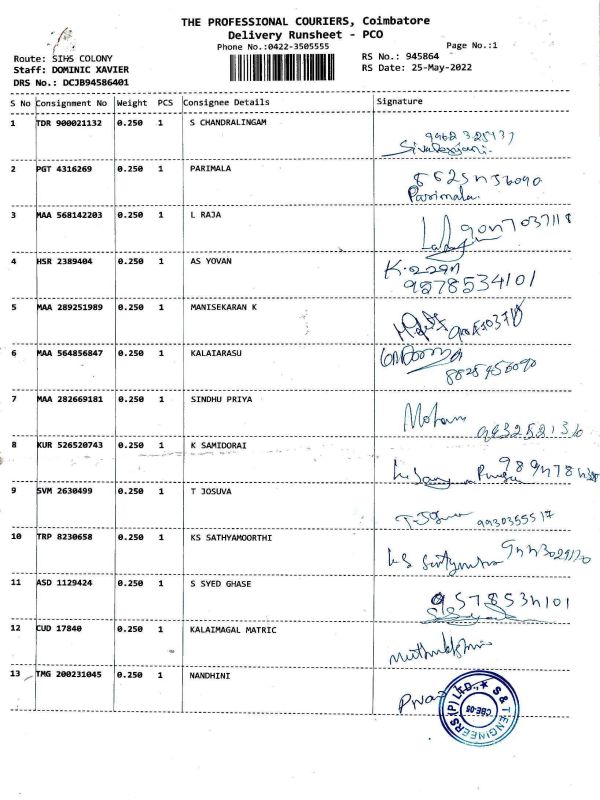 THE PROFESSIONAL COURIERS, Coimbatore
Delivery Runsheet - PCO
Phone No.:0422-3505555
Page No.:1
Route: SIHS COLONY
RS No.: 945864
Staff: DOMINIC XAVIER
RS Date: 25-May-2022
DRS No.: DCJB94586401
S No Consignment No Weight PCS Consignee Details Signature
1 TDR 900021132 0.250 1 S CHANDRALINGAM
2 PGT 4316269 0.250 1 PARIMALA
Parimala
3 MAA 568142203 0.250 1 L RAJA
4 HSR 2389404 0.250 1 AS YOVAN
9578534101
5 MAA 289251989 0.250 1 MANISEKARAN K
6 MAA 564856847 0.250 1 KALAIARASU
7 MAA 282669181 0.250 1 SINDHU PRIYA
Mohan
8 KUR 526520743 0.250 1 K SAMIDORAI
9 SVM 2630499 0.250 1 T JOSUVA
10 TRP 8230658 0.250 1 KS SATHYAMOORTHI
11 ASD 1129424 0.250 1 S SYED GHASE
9578534101
12 CUD 17840 0.250 1 KALAIMAGAL MATRIC
13 TMG 200231045 0.250 1 NANDHINI
S & T ENGINEERS (P) LTD.,
CBE-05